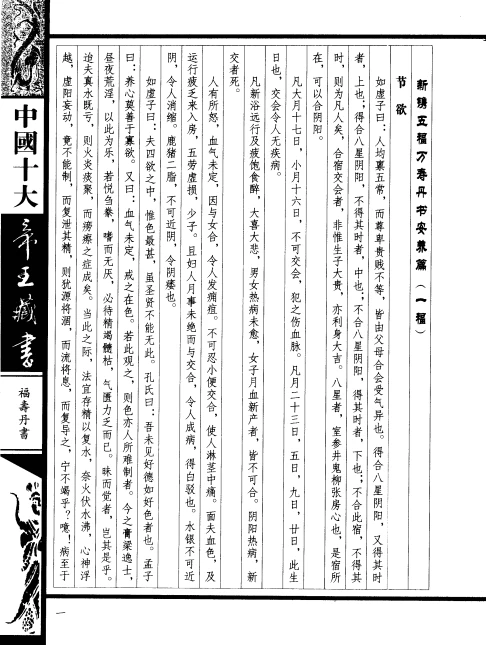 新镌五福万寿丹书安养篇（一福）
节欲
如虚子曰：人均禀五常，而尊卑贵贱不等，皆由父母合会受气异也。得合八星阴阳，又得其时
者，上也；得合八星阴阳，不得其时者，中也；不合八星阴阳，得其时者，下也；不合此宿，不得其
时，则为凡人矣，合宿交会者，非惟生子大贵，亦利身大吉。八星者，室参井鬼柳张房心也，是宿所
在，可以合阴阳。
凡大月十七日，小月十六日，不可交会，犯之伤血脉。凡月二十三日，五日，九日，廿日，此生
日也，交会令人无疾病。
凡新浴远行及疲饱食醉，大喜大悲，男女热病未愈，女子月血新产者，皆不可合。阴阳热病，新
交者死。
人有所怒，血气未定，因与女合，令人发痈疽。不可忍小便交合，使人淋茎中痛。面夫血色，及
运行疲乏来入房，五劳虚损，少子。且妇人月事未绝而与交合，令人成病，得白驳也。水银不可近
阴，令人消缩。鹿猪二脂，不可近阴，令阴痿也。
如虚子曰：夫四欲之中，惟色最甚，虽圣贤不能无此。孔氏曰：吾未见好德如好色者也。孟子
曰：养心莫善于寡欲。又曰：血气未定，戒之在色。若此观之，则色亦人所难制者。今之膏梁逸士，
昼夜荒淫，以此为乐，若悦刍豢，嗜而无厌，必待精竭髓枯，气匮力乏而已。昧而觉者，岂其是乎。
迨夫真水既亏，则火炎痰聚，而痨瘵之症成矣。当此之际，法宜存精以复水，奈火伏水沸，心神浮
越，虚阳妄动，竟不能制，而复泄其精，则犹源将涸，而流将息，而复导之，宁不竭乎？噫！病至于
中國十大
帝王藏書
福壽丹書
一